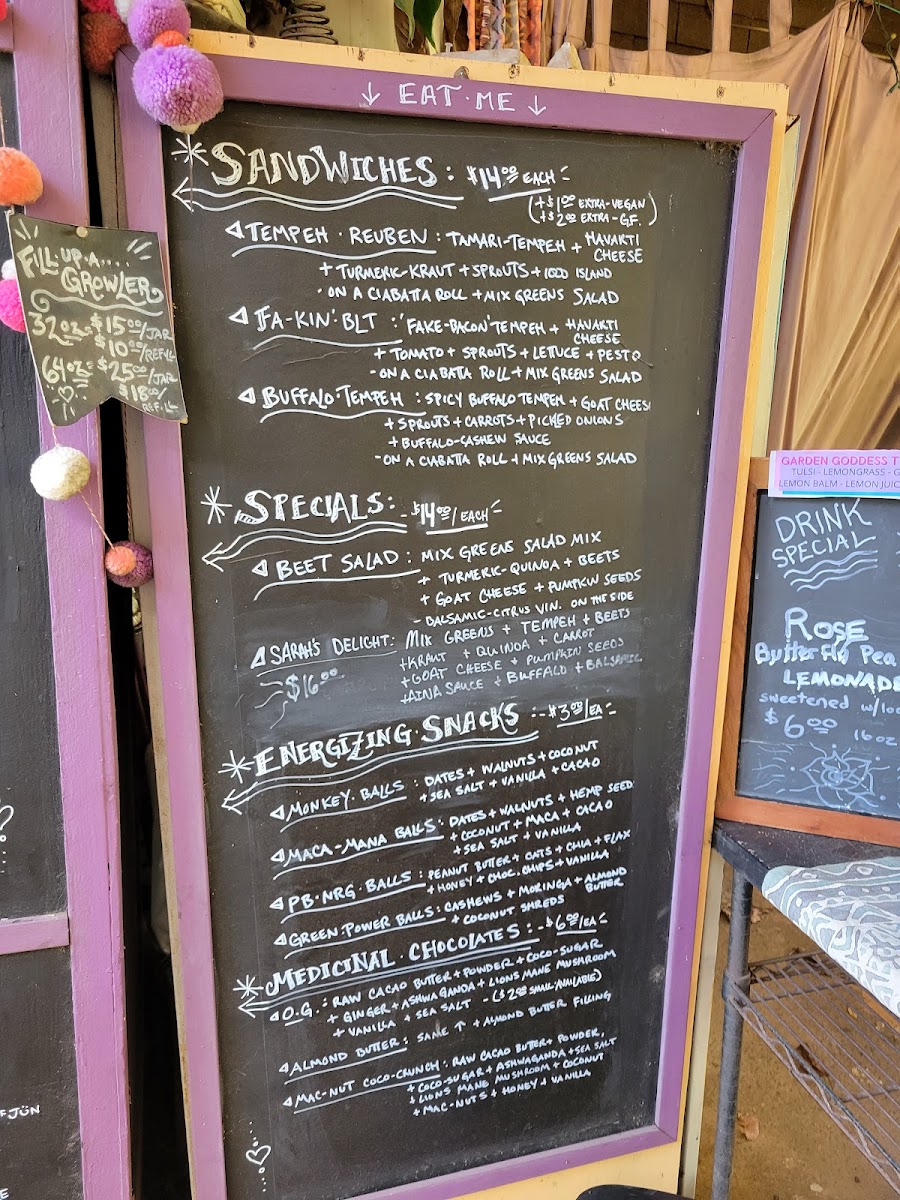 ↓ EAT·ME ↓
* SANDWICHES: $14.00 EACH
(+$1.00 EXTRA-VEGAN
+$2.00 EXTRA-G.F.)
TEMPEH·REUBEN: TAMARI-TEMPEH + HAVARTI
CHEESE
+ TURMERIC-KRAUT + SPROUTS + 1000 ISLAND
- ON A CIABATTA ROLL + MIX GREENS SALAD
'FA-KIN' BLT: 'FAKE-BACON' TEMPEH + HAVARTI
CHEESE
+ TOMATO + SPROUTS + LETTUCE + PESTO
- ON A CIABATTA ROLL + MIX GREENS SALAD
BUFFALO·TEMPEH: SPICY BUFFALO TEMPEH + GOAT CHEESE
+ SPROUTS + CARROTS + PICKED ONIONS
+ BUFFALO-CASHEW SAUCE
- ON A CIABATTA ROLL + MIX GREENS SALAD
* SPECIALS: - $14.00/EACH
BEET SALAD: MIX GREENS SALAD MIX
+ TURMERIC-QUINOA + BEETS
+ GOAT CHEESE + PUMPKIN SEEDS
- BALSAMIC-CITRUS VIN. ON THE SIDE
SARAH'S DELIGHT: MIX GREENS + TEMPEH + BEETS
+ KRAUT + QUINOA + CARROT
$16.00 + GOAT CHEESE + PUMPKIN SEEDS
+ AINA SAUCE + BUFFALO + BALSAMIC
* ENERGIZING·SNACKS: - $3.00/EA
MONKEY·BALLS: DATES + WALNUTS + COCONUT
+ SEA SALT + VANILLA + CACAO
MACA-MANA BALLS: DATES + WALNUTS + HEMP SEED
+ COCONUT + MACA + CACAO
+ SEA SALT + VANILLA
PB·NRG·BALLS: PEANUT BUTTER + OATS + CHIA + FLAX
+ HONEY + CHOC. CHIPS + VANILLA
GREEN·POWER BALLS: CASHEWS + MORINGA + ALMOND
BUTTER
+ COCONUT SHREDS
* MEDICINAL·CHOCOLATES: - $6.00/EA
O.G.: RAW CACAO BUTTER + POWDER + COCO-SUGAR
+ GINGER + ASHWAGANDA + LIONS MANE MUSHROOM
+ VANILLA + SEA SALT - ($2.00 SMALL-AVAILABLE)
ALMOND BUTTER: SAME ↑ + ALMOND BUTTER FILLING
MAC-NUT COCO-CRUNCH: RAW CACAO BUTTER + POWDER,
+ COCO-SUGAR + ASHWAGANDA + SEA SALT
+ LIONS MANE MUSHROOM + COCONUT
+ MAC-NUTS + HONEY + VANILLA
FILL·UP·A....
GROWLER
32oz = $15.00/JAR
$10.00/REFILL
64oz = $25.00/JAR
$18.00/
REFILL
GARDEN GODDESS T
TULSI - LEMONGRASS - G
LEMON BALM - LEMON JUIC
DRINK
SPECIAL
ROSE
Butterfly Pea
LEMONADE
sweetened w/
$6.00 16oz